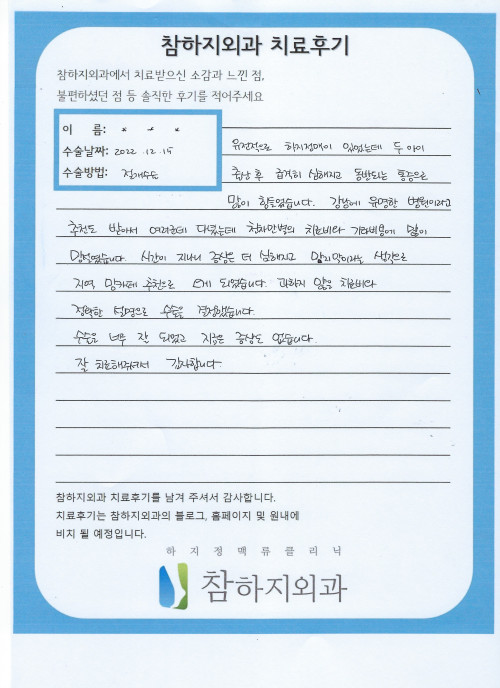 참하지외과 치료후기
참하지외과에서 치료받으신 소감과 느낀 점,
불편하셨던 점 등 솔직한 후기를 적어주세요
이 름: * * *
수술날짜: 2022. 12. 15
수술방법: 절개수술
유전적으로 하지정맥이 있었는데 두 아이
출산 후 급격히 심해지고 동반되는 통증으로
많이 힘들었습니다. 강남에 유명한 병원이라고
추천도 받아서 여러군데 다녔는데 천차만별의 치료비와 기타비용에 많이
망설였습니다. 시간이 지나니 증상은 더 심해지고 마지막이라는 생각으로
지역 맘카페 추천으로 오게 되었습니다. 과하지 않은 치료비와
정확한 설명으로 수술을 결정했습니다.
수술은 너무 잘 되었고 지금은 증상도 없습니다.
잘 치료해주셔서 감사합니다.
참하지외과 치료후기를 남겨 주셔서 감사합니다.
치료후기는 참하지외과의 블로그, 홈페이지 및 원내에
비치 될 예정입니다.
하지정맥류클리닉
참하지외과